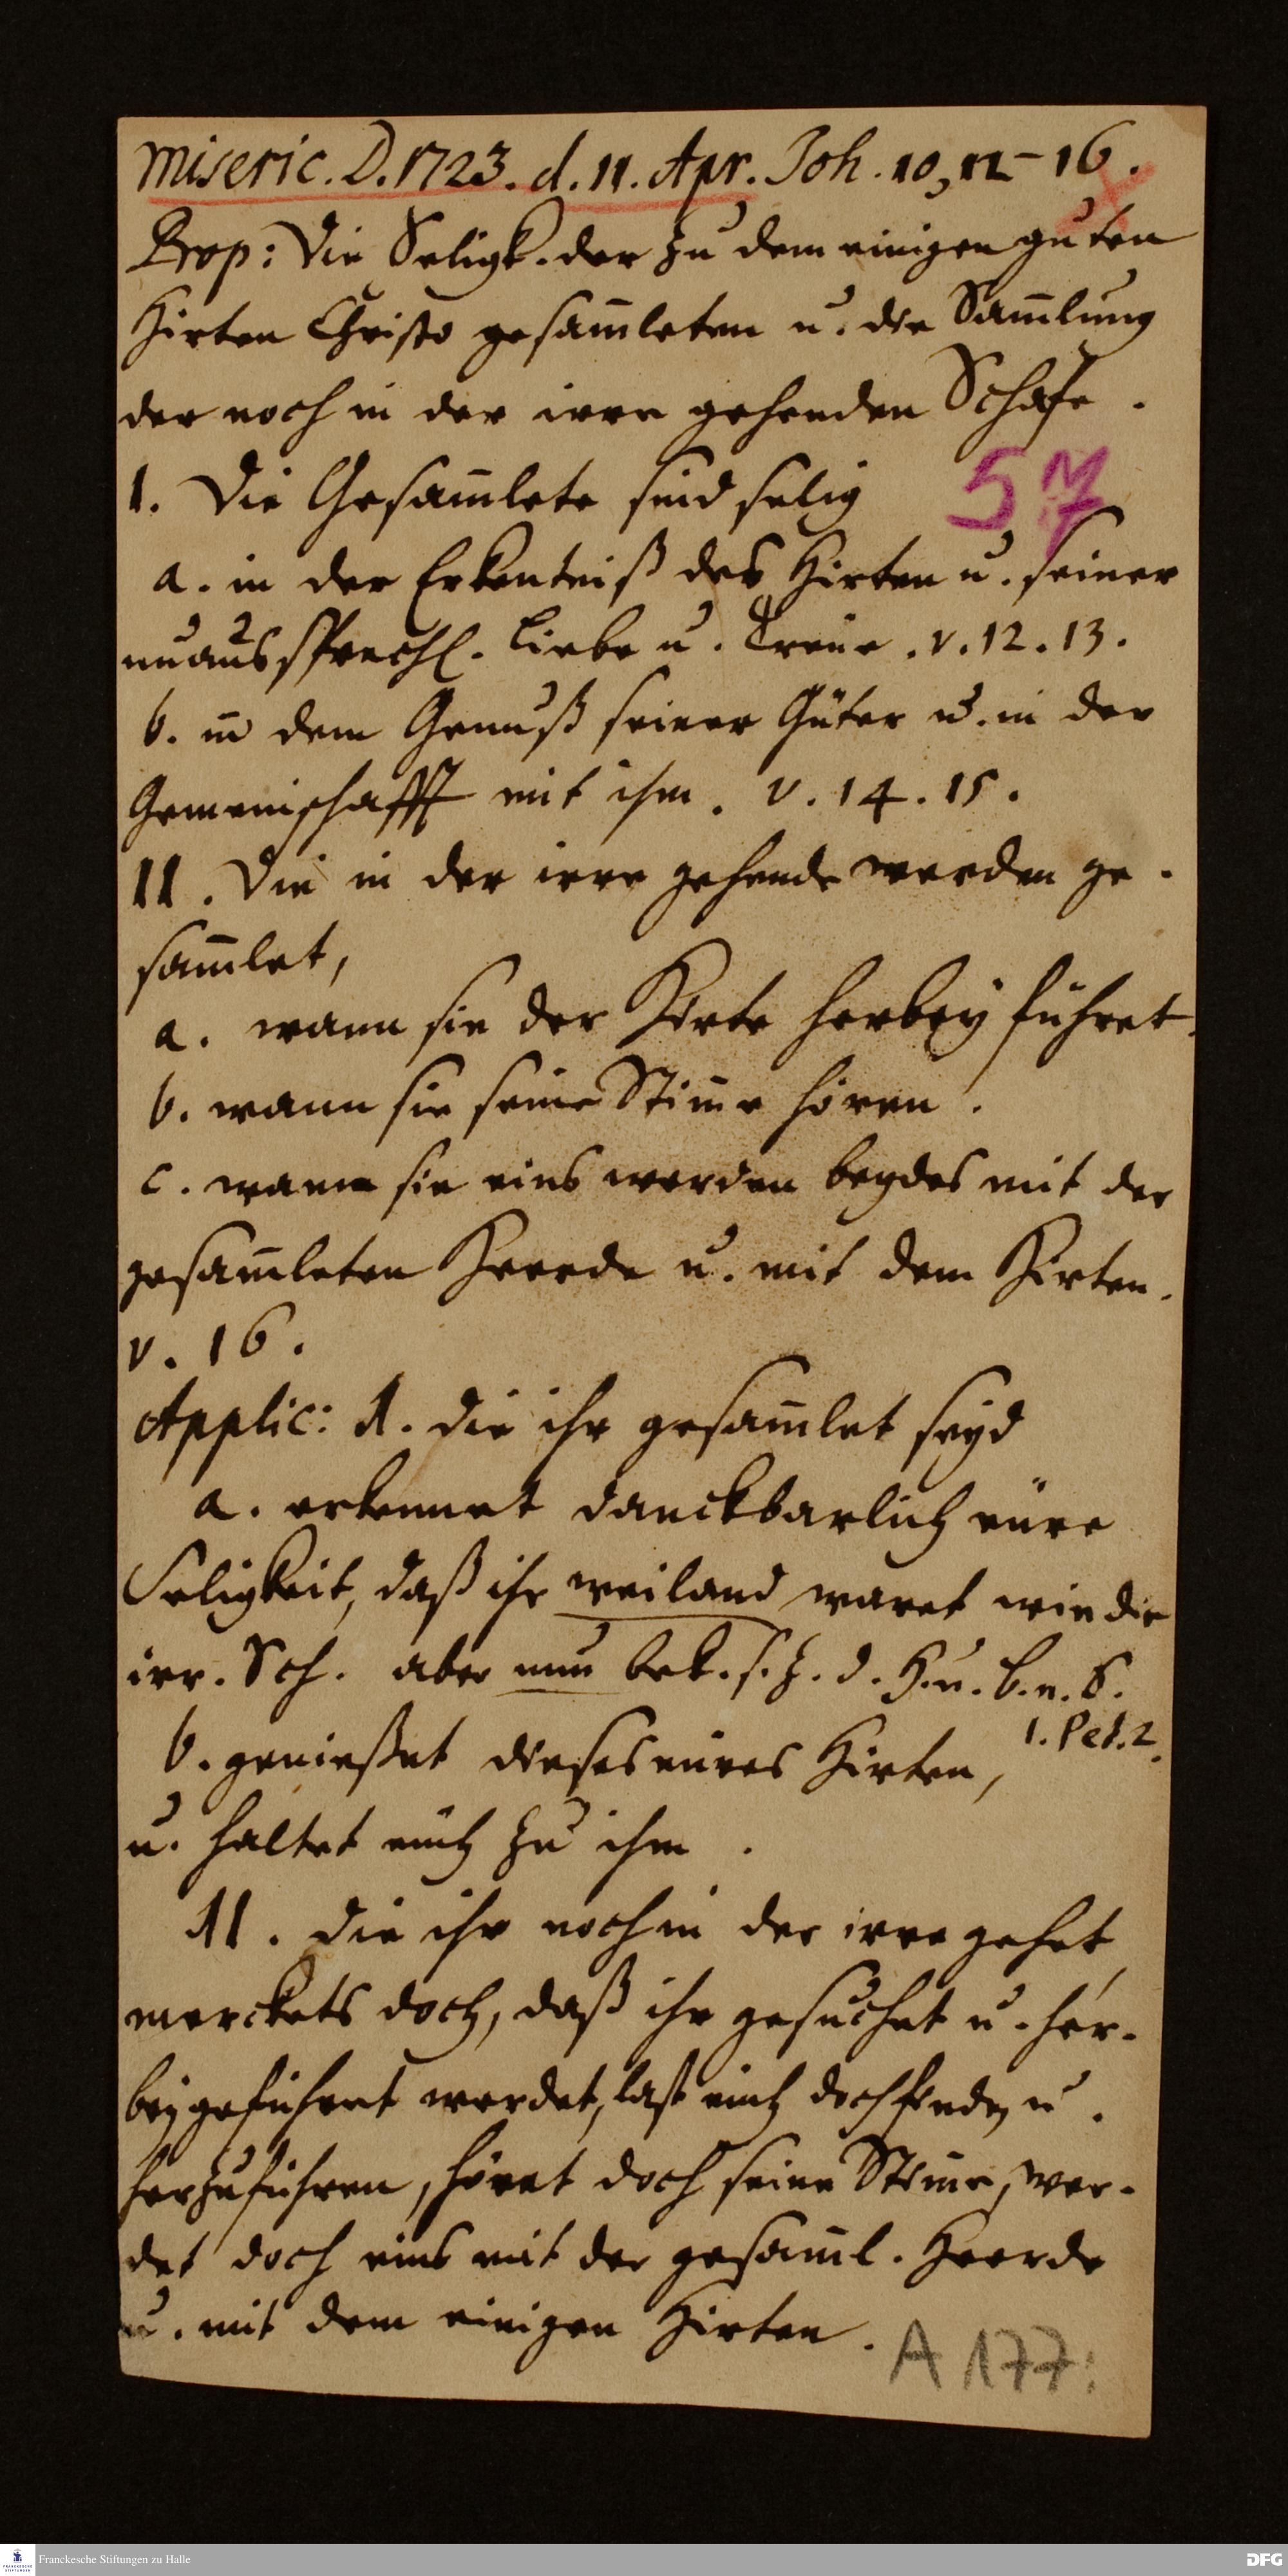 Miseric. D. 1723. d. 11. Apr. Joh. 10, 12-16.
Prop: Die Seligk. der zu dem einigen guten
Hirten Christo gesam̄leten u. die Sam̄lung
der noch in der irre gehenden Schafe.
1. Die Gesam̄lete sind selig
57
a. in der Erkentniß des Hirten u. seiner
unaussprechl. Liebe u. Treüe. v. 12. 13.
b. in dem Genuß seiner Güter u. in der
Gemeinschafft mit ihm. v. 14. 15.
II. Die in der irre gehende werden ge-
sam̄let,
a. wann sie der Hirte herbey führet.
b. wann sie seine Stim̄e hören.
c. wann sie eins werden beydes mit der
gesam̄leten Heerde u. mit dem Hirten.
v. 16.
Applic: I. die ihr gesam̄let seyd
a. erkennet danckbarlich eüre
Seligkeit, daß ihr weiland waret wie die
irr. Sch. aber nun bek. s. z. d. H. u. B. e. S.
1. Pet. 2.
b. genießet dieses eüres Hirten,
u. haltet eüch zu ihm.
II. die ihr noch in der irre gehet,
merckets doch, daß ihr gesuchet u. her-
bey geführet werdet, last eüch doch finden u.
herzuführen, höret doch seine Stim̄e, wer-
det doch eins mit der gesam̄l. Heerde
u. mit dem einigen Hirten.
A 177:
Franckesche Stiftungen zu Halle
DFG